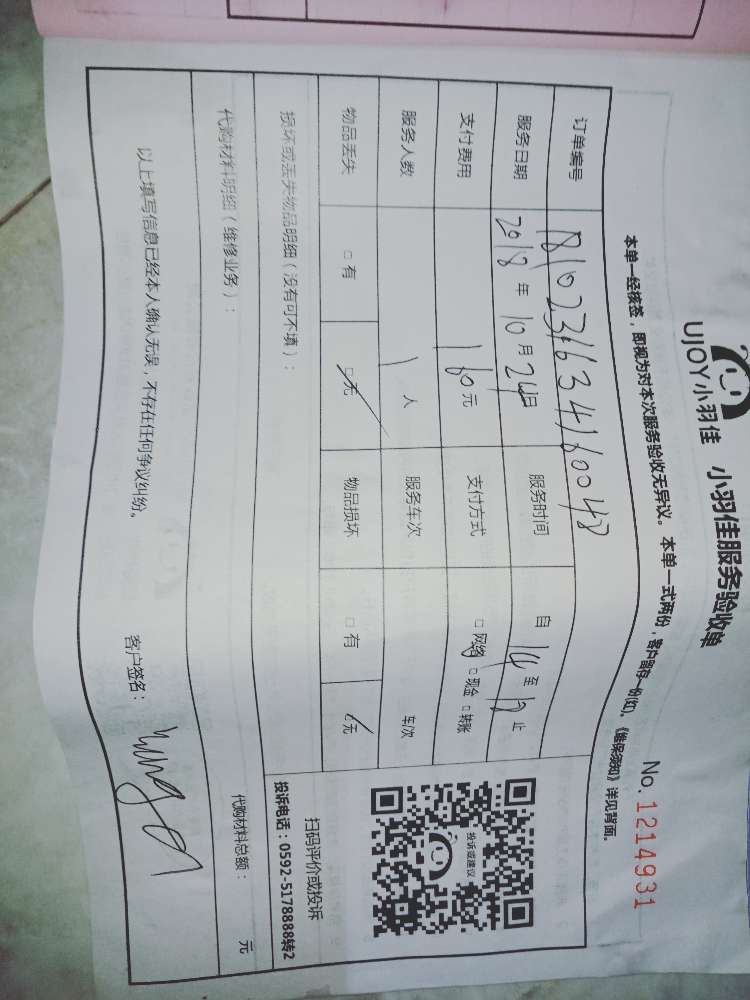 UJOY小羽佳 小羽佳服务验收单 No.1214931
本单一经核签，即视为对本次服务验收无异议。本单一式两份，客户留存一份(红)。《维保须知》详见背面。
订单编号
服务日期 2018年10月24日 服务时间 自14至18止
支付费用 160元 支付方式 □网络 □现金 □转账
服务人数 1人 服务车次 车次
物品丢失 □有 □无 物品损坏 □有 □无
损坏或丢失物品明细（没有可不填）：
投诉或建议
扫码评价或投诉
投诉电话：0592-5178888转2
代购材料明细（维修业务）： 代购材料总额： 元
以上填写信息已经本人确认无误，不存在任何争议纠纷。 客户签名：